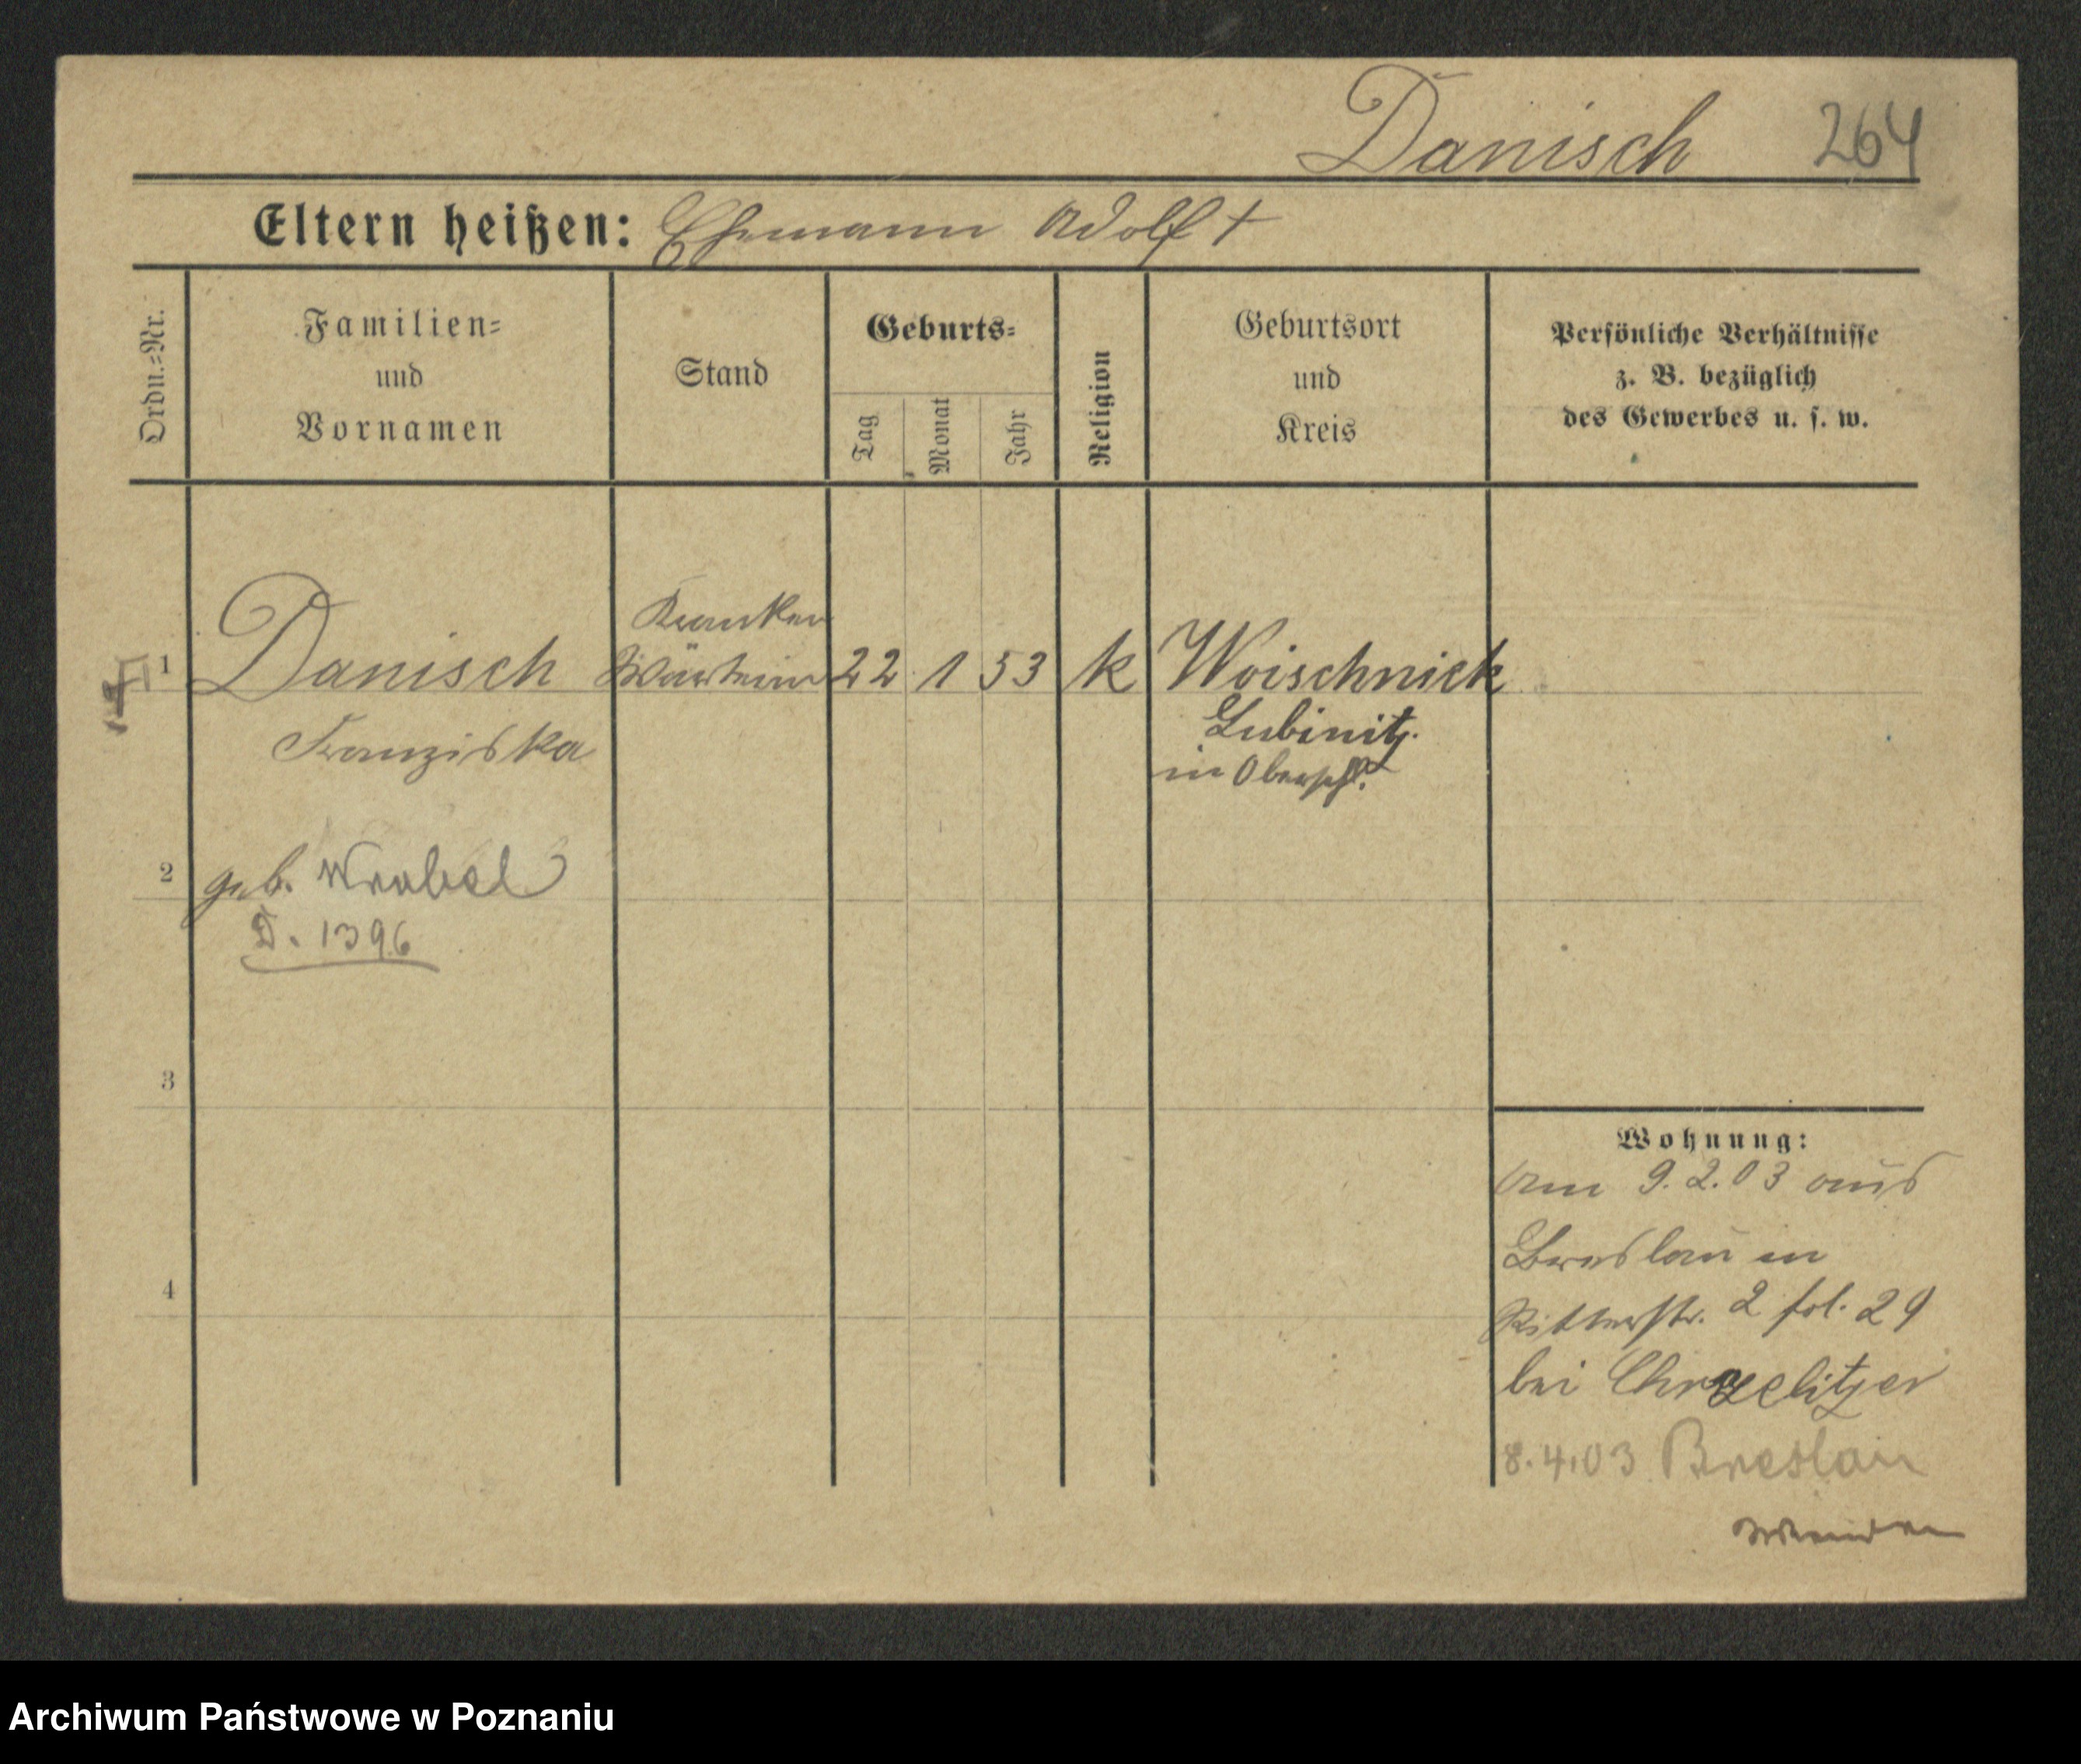 Danisch 264
Eltern heißen: Ehemann Adolf †
Ordn.=Nr.
Familien=
und
Vornamen
Stand
Geburts=
Tag
Monat
Jahr
Religion
Geburtsort
und
Kreis
Persönliche Verhältnisse
z. B. bezüglich
des Gewerbes u. s. w.
Kranken
1 Danisch Wärterin 22 1 53 k Woischnick
Franziska
Lubinitz
in Oberschl.
2 geb. Wrobel
D. 1396
3
4
Wohnung:
Am 9.2.03 aus
Breslau in
Ritterstr. 2 fol. 29
bei Chrzelitzer
8.4.03 Breslau
Wenden
Archiwum Państwowe w Poznaniu